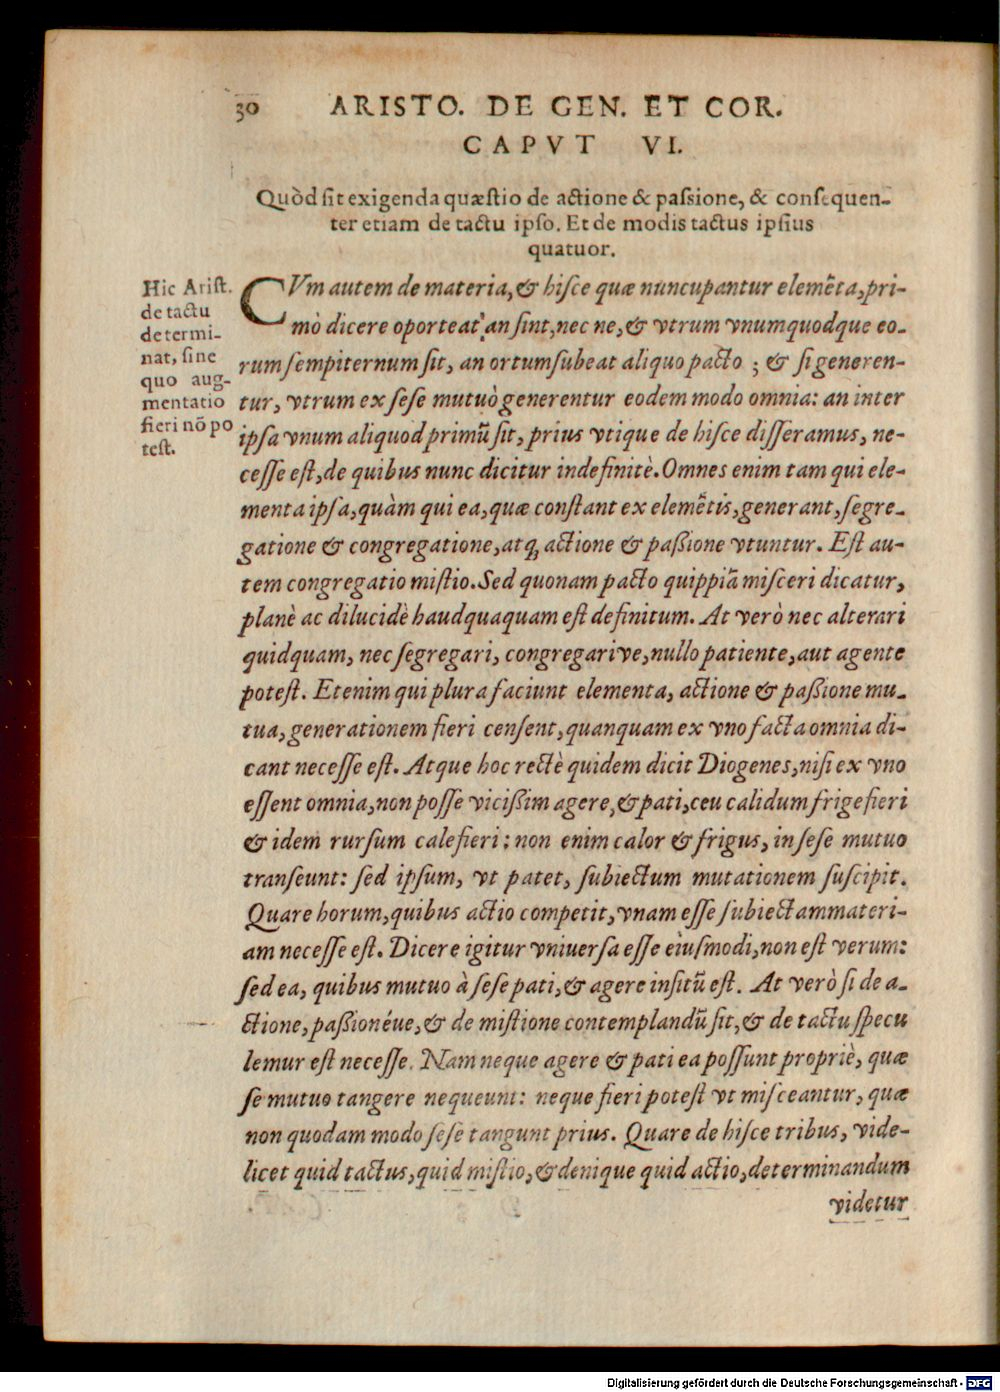 30 ARISTO. DE GEN. ET COR.
CAPVT VI.
Quòd sit exigenda quæstio de actione & passione, & consequen-
ter etiam de tactu ipso. Et de modis tactus ipsius
quatuor.
Hic Arist.
de tactu
determi-
nat, sine
quo aug-
mentatio
fieri nõ po
test.
CVm autem de materia, & hisce quæ nuncupantur elemẽta, pri-
mò dicere oporteat, an sint, nec ne, & vtrum vnumquodque eo-
rum sempiternum sit, an ortum subeat aliquo pacto ; & si generen-
tur, vtrum ex sese mutuò generentur eodem modo omnia: an inter
ipsa vnum aliquod primũ sit, prius vtique de hisce disseramus, ne-
cesse est, de quibus nunc dicitur indefinitè. Omnes enim tam qui ele-
menta ipsa, quàm qui ea, quæ constant ex elemẽtis, generant, segre-
gatione & congregatione, atq; actione & passione vtuntur. Est au-
tem congregatio mistio. Sed quonam pacto quippiã misceri dicatur,
planè ac dilucidè haudquaquam est definitum. At verò nec alterari
quidquam, nec segregari, congregarive, nullo patiente, aut agente
potest. Etenim qui plura faciunt elementa, actione & passione mu-
tua, generationem fieri censent, quanquam ex vno facta omnia di-
cant necesse est. Atque hoc rectè quidem dicit Diogenes, nisi ex vno
essent omnia, non posse vicissim agere, & pati, ceu calidum frigefieri
& idem rursum calefieri: non enim calor & frigus, in sese mutuo
transeunt: sed ipsum, vt patet, subiectum mutationem suscipit.
Quare horum, quibus actio competit, vnam esse subiectam materi-
am necesse est. Dicere igitur vniuersa esse eiusmodi, non est verum:
sed ea, quibus mutuo à sese pati, & agere insitũ est. At verò si de a-
ctione, passionéue, & de mistione contemplandũ sit, & de tactu specu
lemur est necesse. Nam neque agere & pati ea possunt propriè, quæ
se mutuo tangere nequeunt: neque fieri potest vt misceantur, quæ
non quodam modo sese tangunt prius. Quare de hisce tribus, vide-
licet quid tactus, quid mistio, & denique quid actio, determinandum
videtur
Digitalisierung gefördert durch die Deutsche Forschungsgemeinschaft - DFG